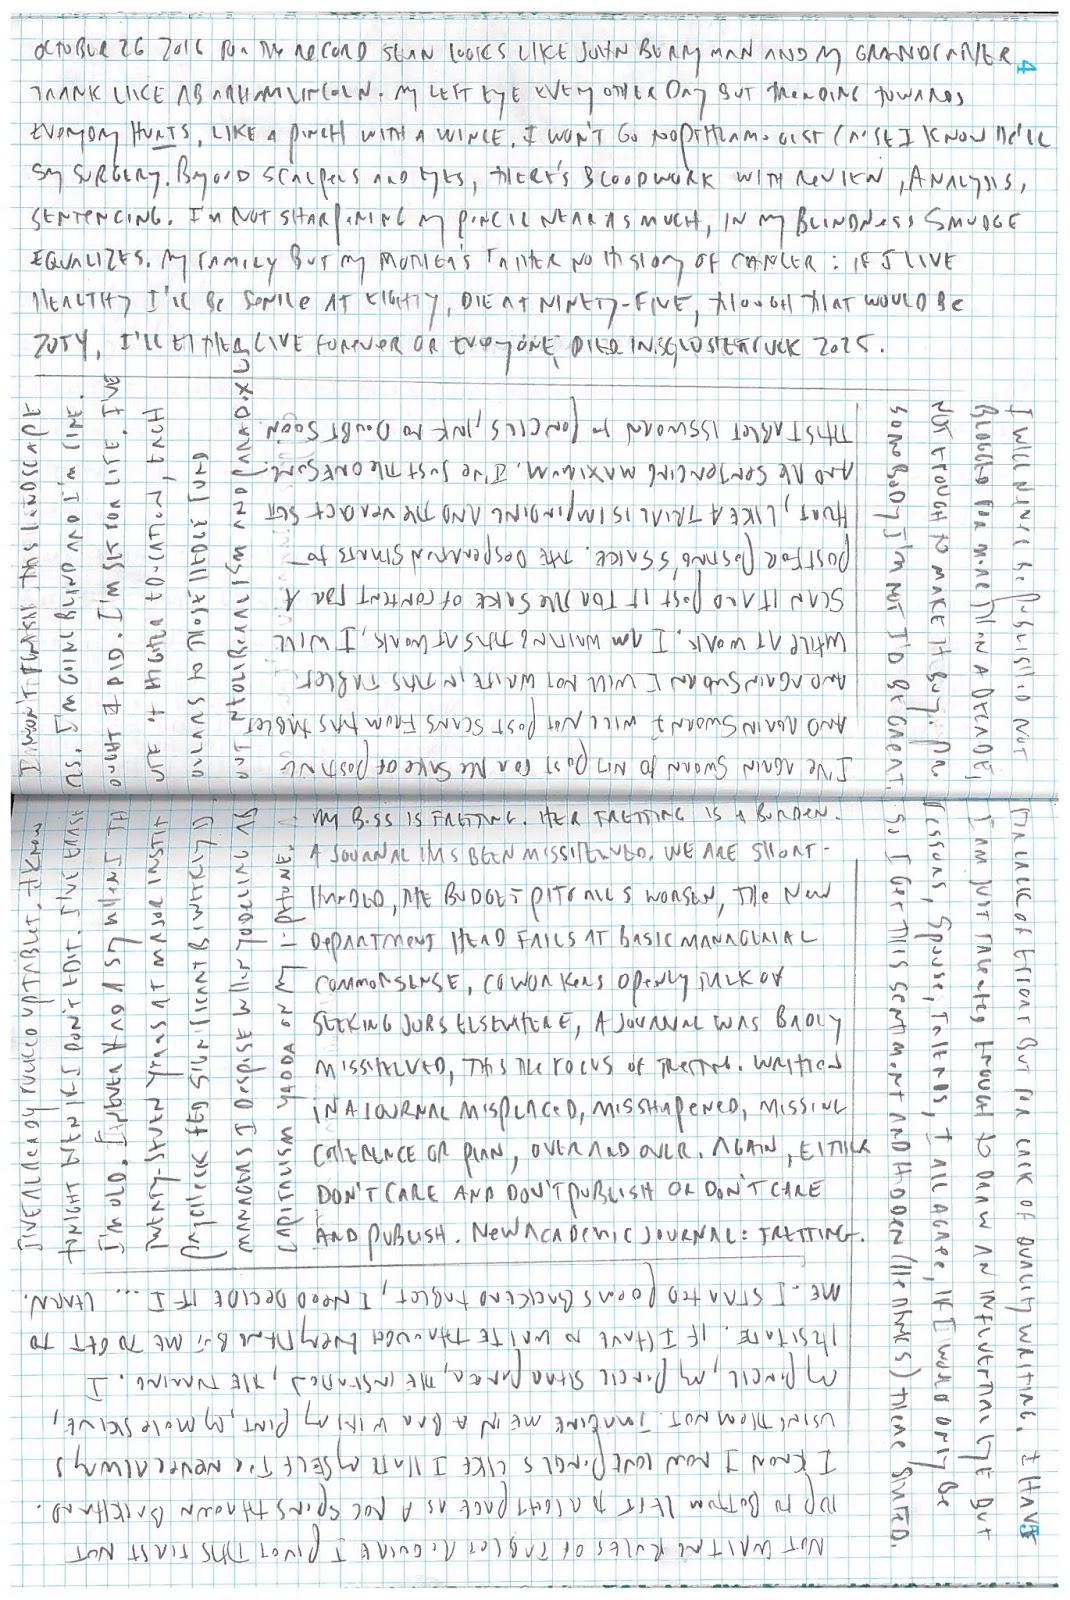 OCTOBER 26 2016 FOR THE RECORD SEAN LOOKS LIKE JOHN BERRYMAN AND MY GRANDFATHER 4
FRANK LIKE ABRAHAM LINCOLN. MY LEFT EYE EVERY OTHER DAY BUT TRENDING TOWARDS
EVERYDAY HURTS, LIKE A PINCH WITH A WINCE. I WON'T GO CAUSE I KNOW HE'LL
SAY SURGERY. BEYOND SCALPELS AND EYES, THERE'S BLOODWORK WITH REVIEW, ANALYSIS,
SENTENCING. I'M NOT SHARPENING MY PENCIL NEAR AS MUCH, IN MY BLINDNESS SMUDGE
EQUALIZES. MY FAMILY BUT MY MOTHER'S FATHER NO HISTORY OF CANCER: IF I LIVE
HEALTHY I'LL BE SENILE AT EIGHTY, DIE AT NINETY-FIVE, THOUGH THAT WOULD BE
2054, I'LL EITHER LIVE FOREVER OR EVERYONE DIED IN 2025.
I WILL NEVER BE PUBLISHED NOT FOR LACK OF EFFORT BUT FOR LACK OF QUALITY WRITING. I HAVE 5
BLOGGED FOR MORE THAN A DECADE, I AM JUST TALENTED ENOUGH TO DRAW AN INFLUENTIAL EYE BUT
NOT ENOUGH TO MAKE IT BUY. PROFESSORS, SPOUSE, FRIENDS, ALL AGREE, IF I WERE ONLY BE
SOMEBODY I'M NOT I'D BE GREAT. SO I GET THIS SENTIMENT AND HIDDEN (HE THINKS) THERE STATED.
I'VE AGAIN SWORN TO NOT POST FOR THE SAKE OF POSTING
AND AGAIN SWORN I WILL NOT POST SCANS FROM THIS TABLET
AND AGAIN SWORN I WILL NOT WRITE IN THIS TABLET
WHILE AT WORK. I AM WRITING THIS AT WORK, I WILL
SCAN IT AND POST IT FOR THE SAKE OF CONTENT FOR A
POST FOR POSTING'S SAKE. THE DESPERATION STARTS TO
HURT, LIKE A TRIAL IS IMPENDING AND THE VERDICT SET
AND THE SENTENCING MAXIMUM. I'VE JUST THE ONE SONG.
THIS TABLET IS SWORN TO PENCILS, INK NO DOUBT SOON.
I WON'T THIS LANDSCAPE
I'VE ALREADY FUCKED UP TABLET, I KNOW
I'M GOING BLIND AND I'M FINE.
TONIGHT WHEN IKS DON'T EDIT. I'VE
OUGHT I DID. I'M SET FOR LIFE. I'VE
I'M OLD. I NEVER HAD A SAY WHEN I TH
UTE OF HIGHER EDUCATION, EACH
TWENTY-SEVEN YEARS AT MAJOR INSTIT
DOLLARS TO THOSE FUND
PAYCHECK FED SIGNIFICANT BIWEEKLY D
OUT NEOLIBERALISM AND
MANAGERS I DESPISE WHILE YODELING AB
CAPITALISM YADDA ON MY I-PHONE.
MY BOSS IS FRETTING. HER FRETTING IS A BURDEN.
A JOURNAL HAS BEEN MISSHELVED. WE ARE SHORT-
HANDED, THE BUDGET PITFALLS WORSEN, THE NEW
DEPARTMENT HEAD FAILS AT BASIC MANAGERIAL
COMMONSENSE, COWORKERS OPENLY TALK OF
SEEKING JOBS ELSEWHERE, A JOURNAL WAS BADLY
MISSHELVED, THIS THE FOCUS OF FRETTING. WRITTEN
IN A JOURNAL MISPLACED, MISSHAPENED, MISSING
COHERENCE OR PLAN, OVER AND OVER. AGAIN, EITHER
DON'T CARE AND DON'T PUBLISH OR DON'T CARE
AND PUBLISH. NEW ACADEMIC JOURNAL: FRETTING.
NOT WAITING RULES OF TABLET REQUIRE I PIVOT THIS FIRST NOT
UP TO BOTTOM LEFT RIGHT PAGE AS A DOG SPINS THROWN BACKHAND.
I KNOW I NOW LOVE PENCILS LIKE I HATE MYSELF I'VE NEVER ALWAYS
USING THEM NOT. IMAGINE ME IN A BAR WITH MY PINT, MY MOLESKINE,
MY PENCIL, MY PENCIL SHARPENER, THE INSTANCE, THE TURNING. I
HESITATE. IF I HAVE TO WRITE THROUGH EVERYTHING BUT ME TO GET TO
ME. I STARTED POEMS BACKEND TABLET, I NEED DECIDE IF I ... LEARN.